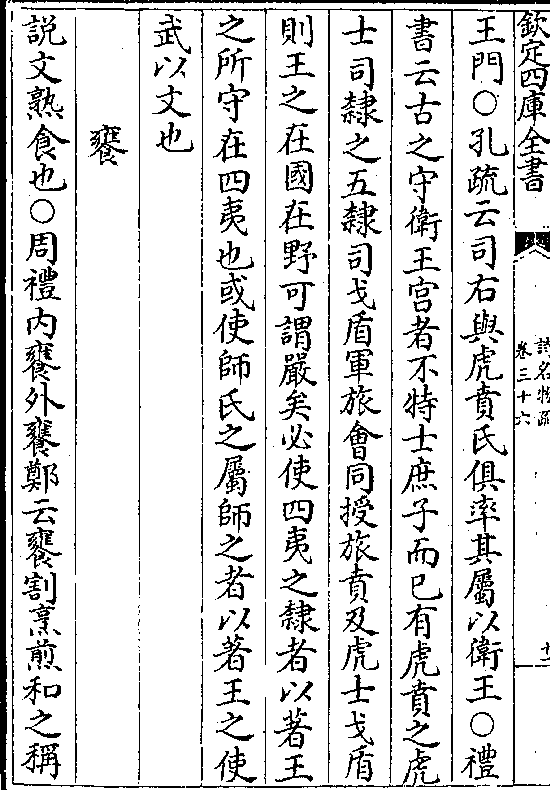 欽定四庫全書
詩名物疏
卷三十六
十二
王門○孔疏云司右與虎賁氏俱率其屬以衛王○禮
書云古之守衛王宮者不特士庶子而已有虎賁之虎
士司隸之五隸司戈盾軍旅會同授旅賁及虎士戈盾
則王之在國在野可謂嚴矣必使四夷之隸者以著王
之所守在四夷也或使師氏之屬師之者以著王之使
武以文也
饔
說文熟食也○周禮内饔外饔鄭云饔割烹煎和之稱